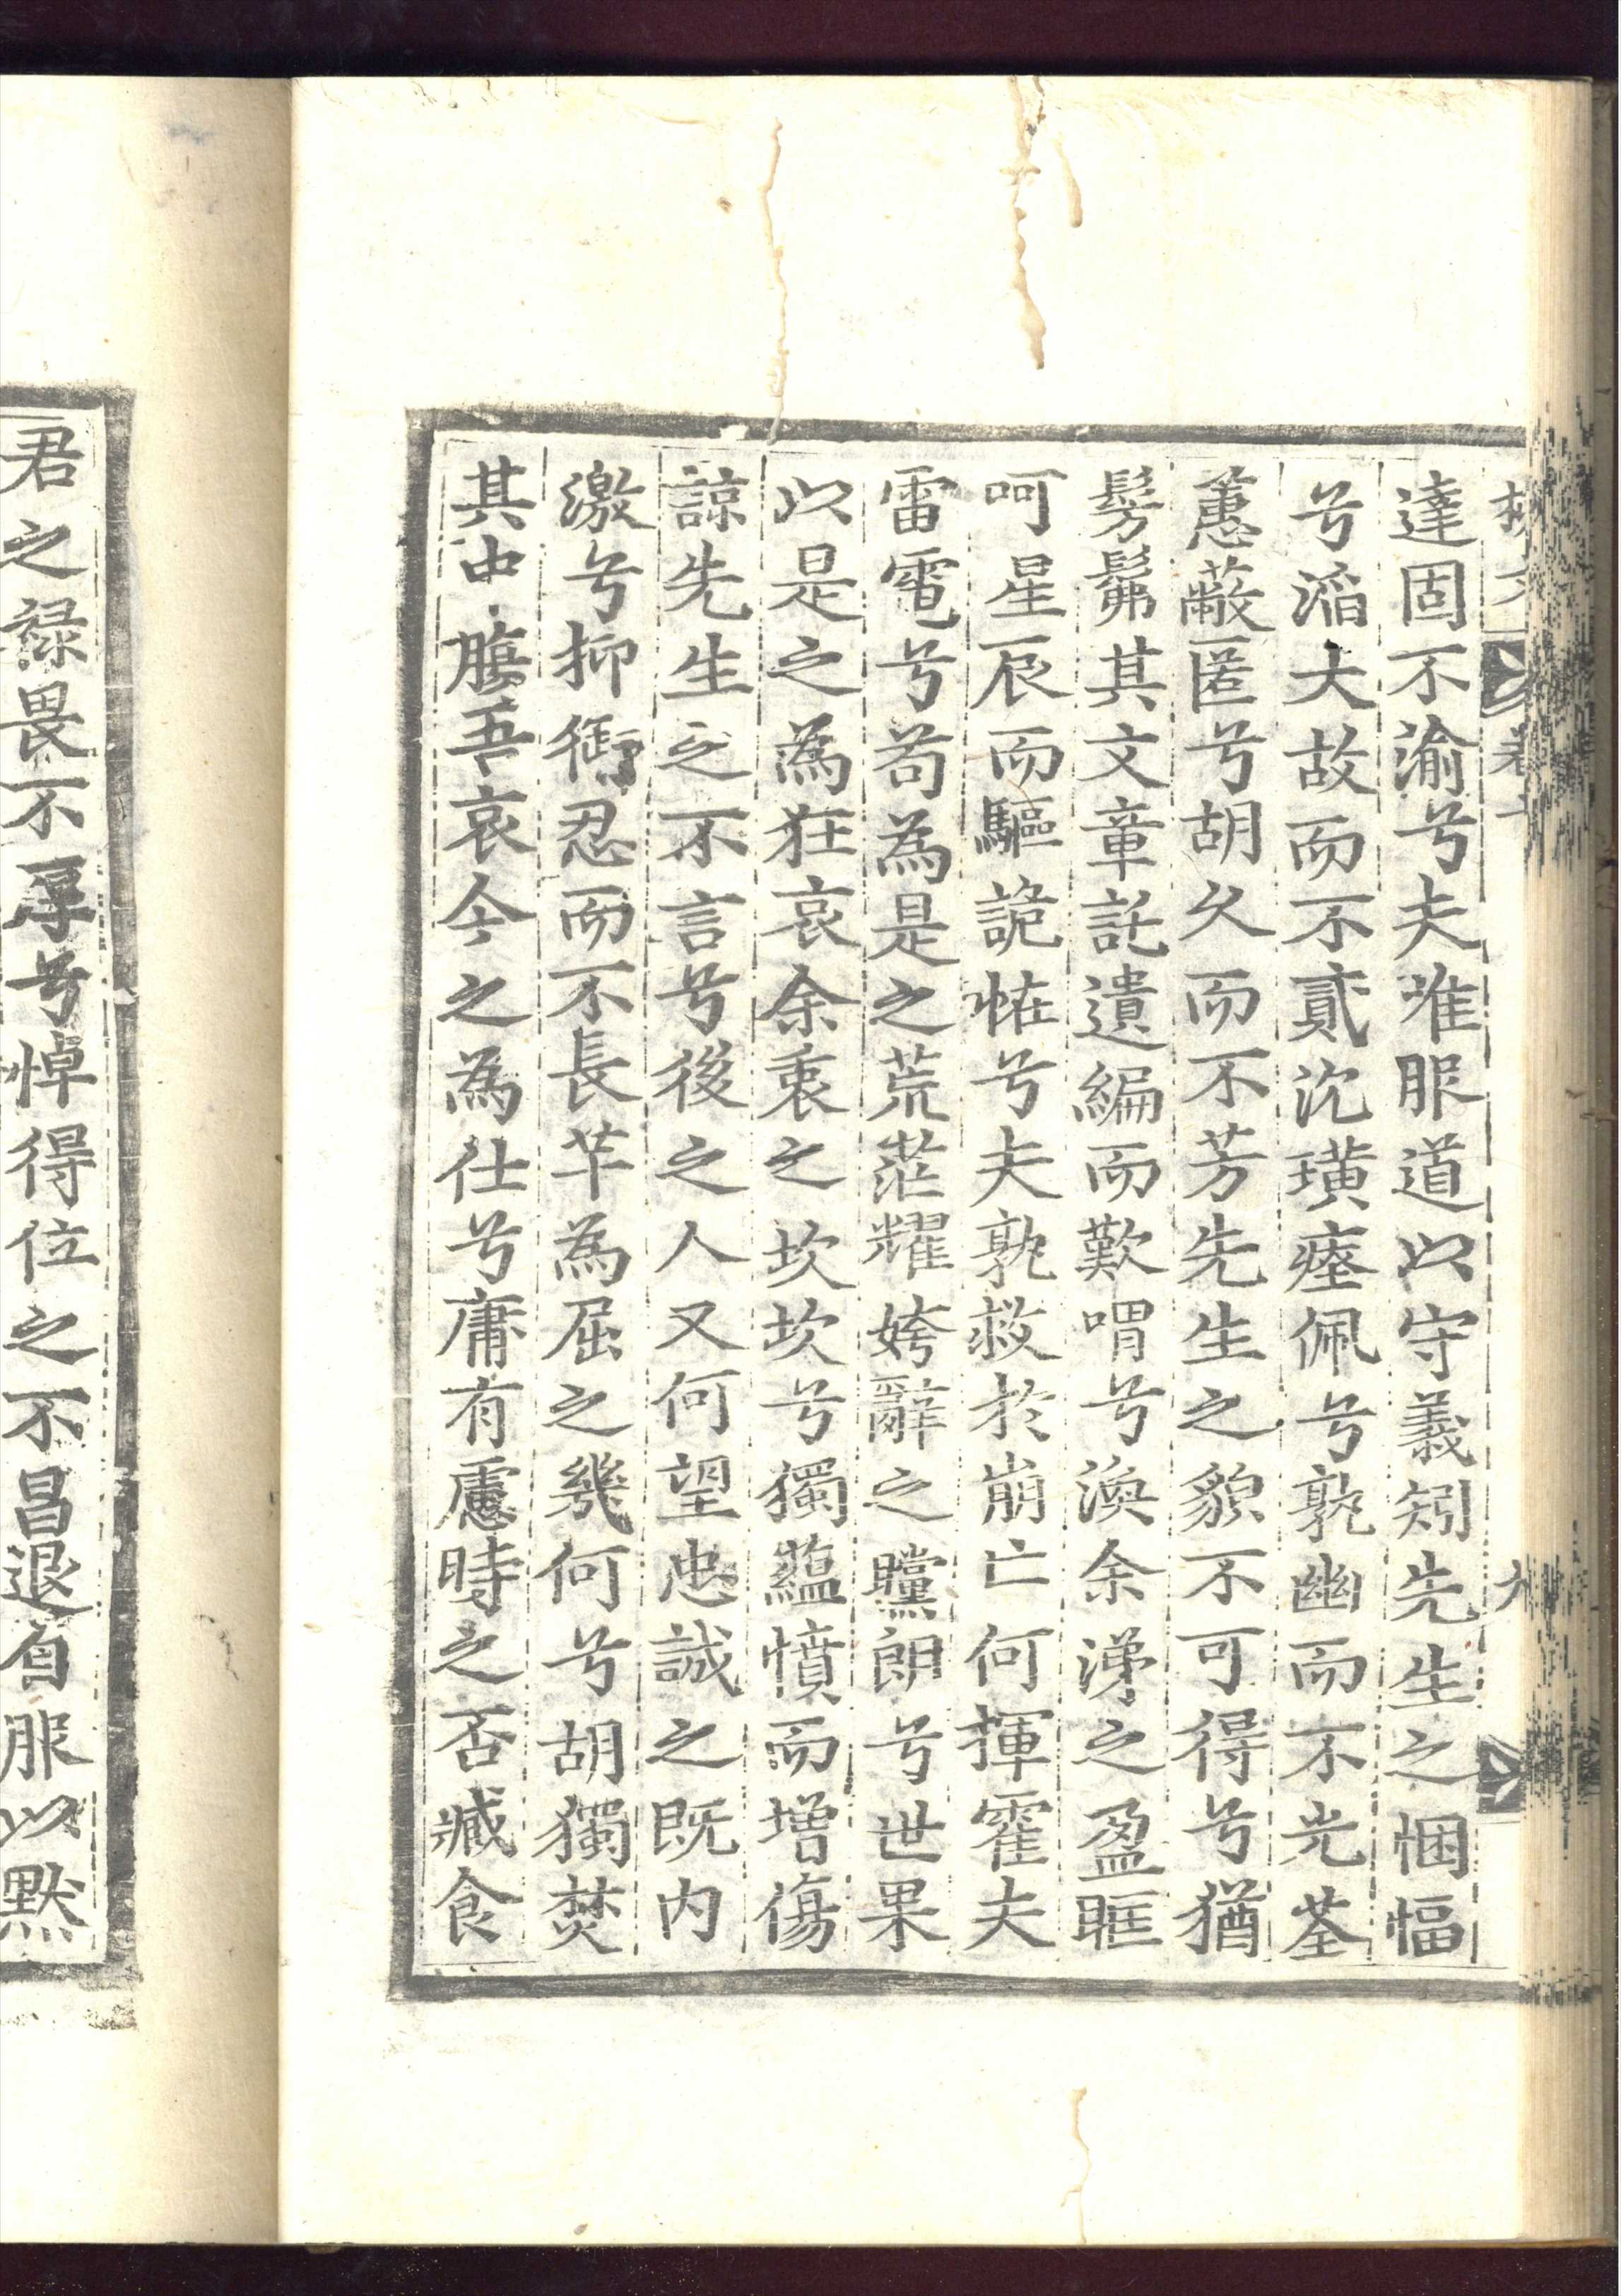 達固不渝兮夫唯服道以守義矧先生之悃愊
兮滔大故而不貳沉璜瘞佩兮孰幽而不光荃
蕙蔽匿兮胡久而不芳先生之貌不可得兮猶
髣髴其文章託遺編而歎喟兮渙余涕之盈眶
呵星辰而驅詭恠兮夫孰救於崩亡何揮霍夫
雷電兮苟為是之荒茫耀姱辭之矘朗兮世果
以是之為狂哀余衷之坎坎兮獨蘊憤而增傷
諒先生之不言兮後之人又何望忠誠之既内
激兮抑銜忍而不長芊為屈之幾何兮胡獨焚
其中腸吾哀今之為仕兮庸有慮時之否臧食
君之祿畏不厚兮悼得位之不昌退自服以默